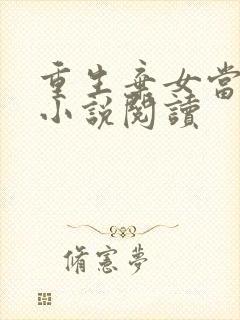 重生棄女當
小說閱讀
脩憲夢